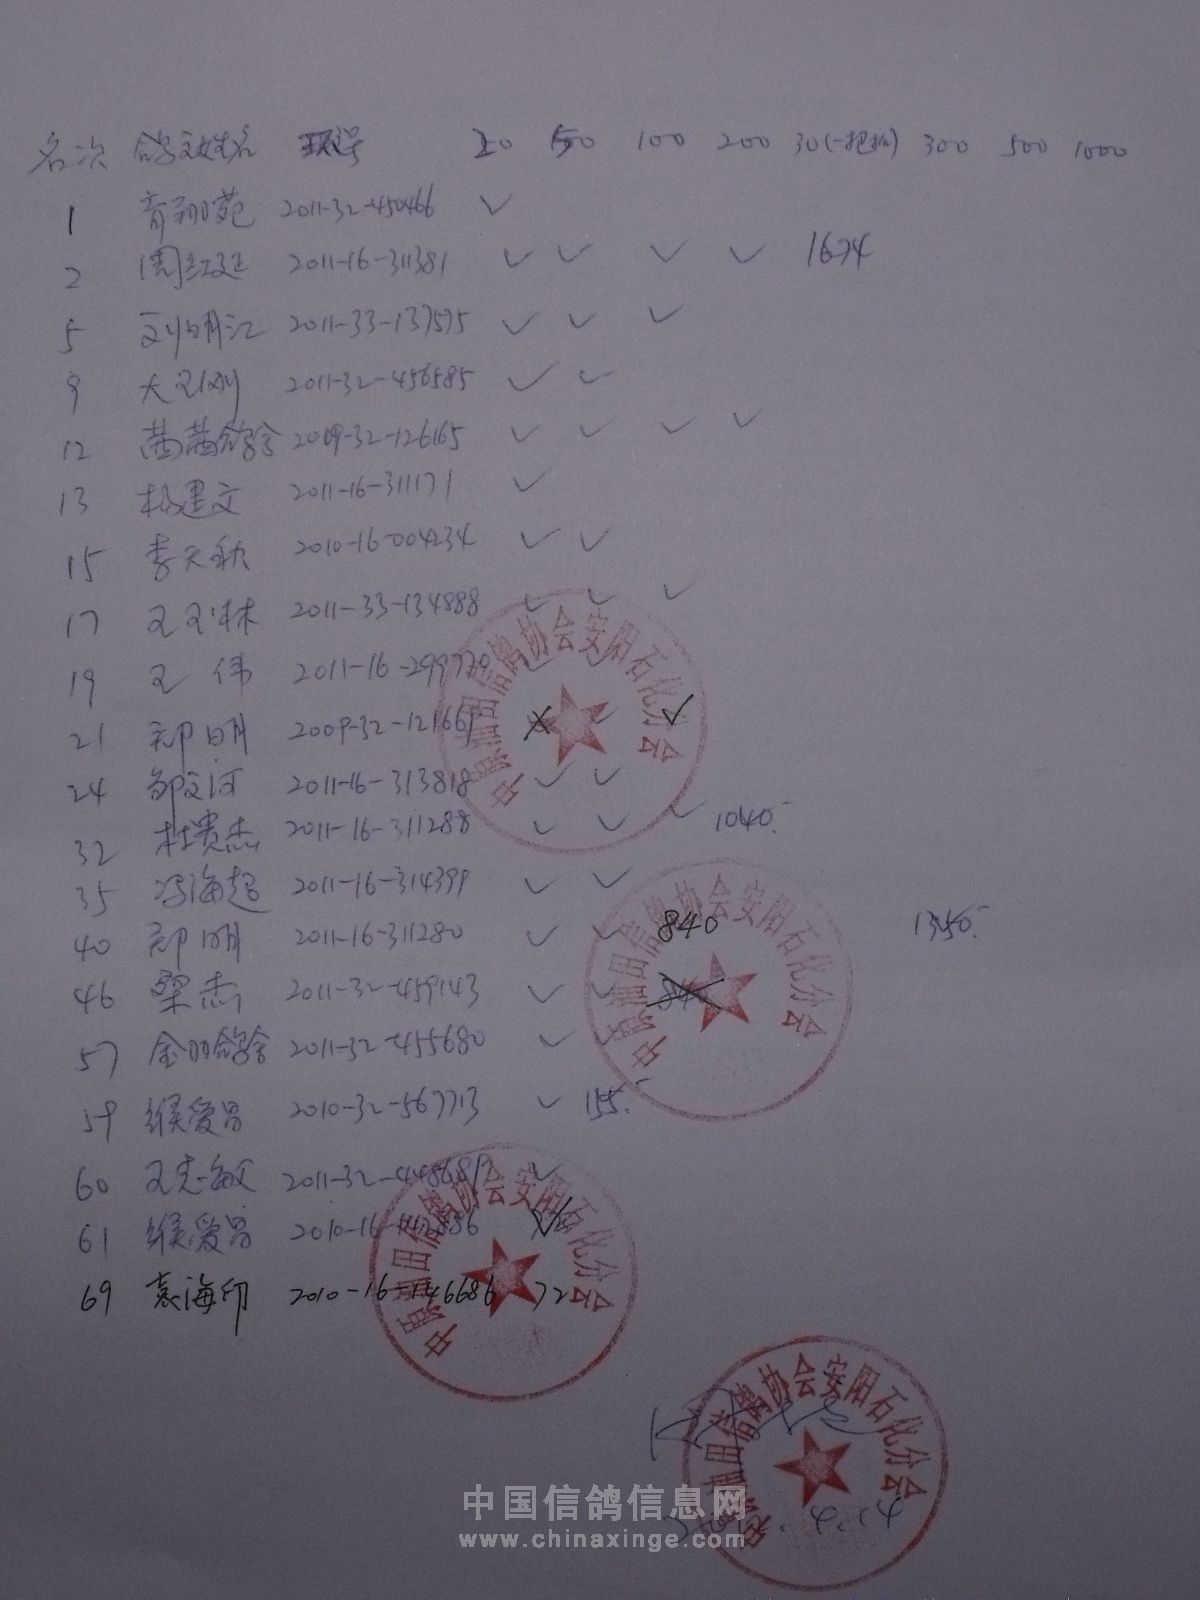 名次 鸽友姓名 环号 20 50 100 200 30(一把抓) 300 500 1000
1 育翔苑 2011-32-450466 ✓
2 周红延 2011-16-311381 ✓ ✓ ✓ ✓ 1674
5 刘明江 2011-33-137575 ✓ ✓ ✓
9 大王刚 2011-32-456585 ✓ ✓
12 茜茜鸽舍 2009-32-126165 ✓ ✓ ✓ ✓
13 杨建文 2011-16-311171 ✓
15 李天秋 2010-16-004234 ✓ ✓
17 王玉林 2011-33-134888 ✓ ✓ ✓
19 王伟 2011-16-299770 ✓ ✓
21 郑明 2009-32-121669 ✗ ✓ ✓
24 邹文河 2011-16-313818 ✓ ✓
32 杜贵杰 2011-16-311288 ✓ ✓ ✓ 1040.-
35 冯海超 2011-16-314399 ✓ ✓
40 郑明 2011-16-311280 ✓ ✓ 840 1350.-
46 梁杰 2011-32-459143 ✓ ✓
57 金羽鸽舍 2011-32-455680 ✓ ✓
59 缑爱昌 2010-32-567713 ✓ 155.-
60 王志敏 2011-32-448689 ✓
61 缑爱昌 2010-16-142886 ✓
69 袁海印 2010-16-146686 72
中原油田信鸽协会安阳石化分会
中原油田信鸽协会安阳石化分会
中原油田信鸽协会安阳石化分会
中原油田信鸽协会安阳石化分会
中国信鸽信息网
www.chinaxinge.com